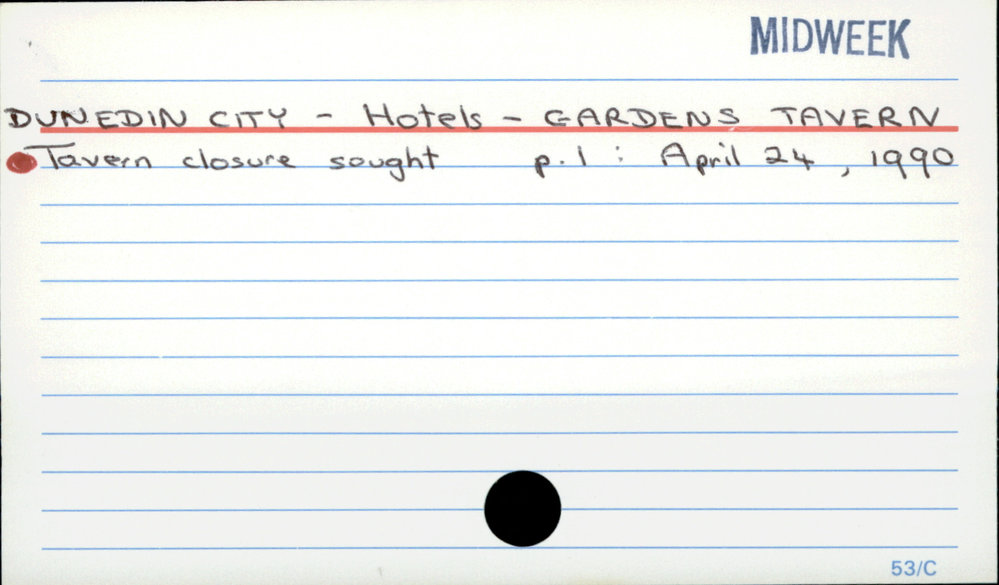 MIDWEEK
DUNEDIN CITY - Hotels - GARDENS TAVERN
Tavern closure sought p.1 : April 24, 1990
53/C